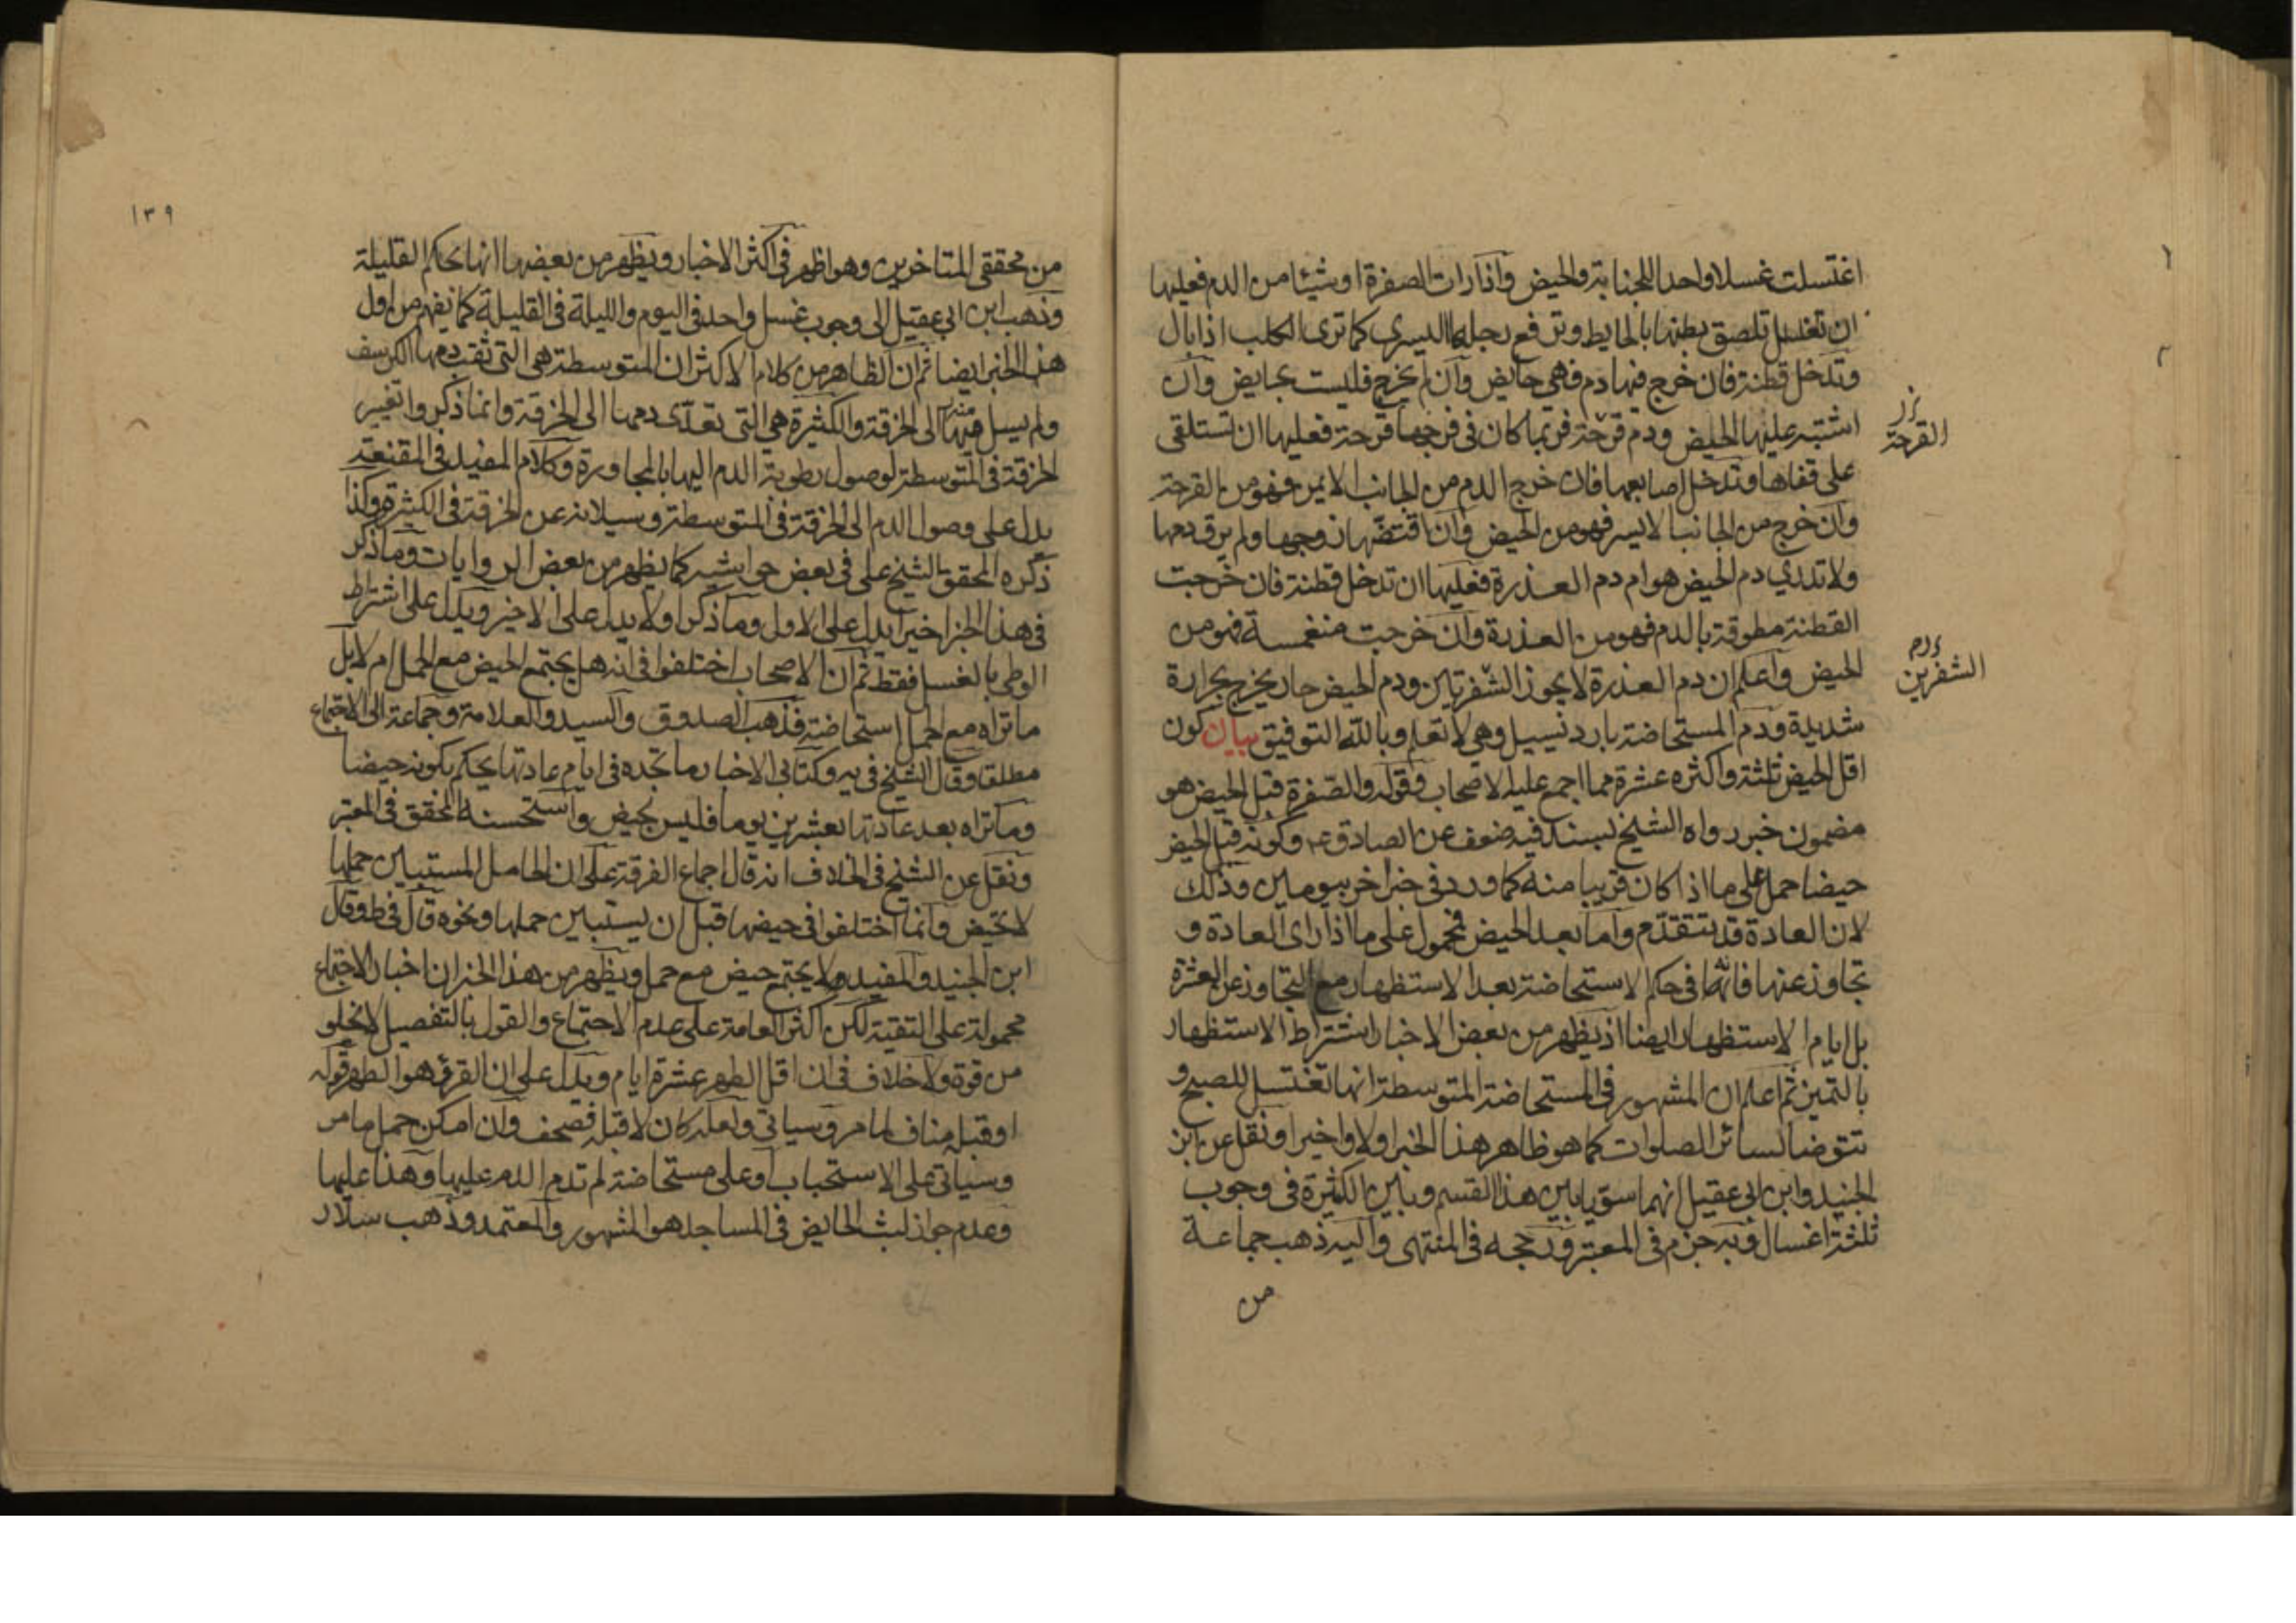 اغتسلت غسلا واحدا للجنابة والحيض واذا رات الصفرة او شيئا من الدم فعليها
ان تغتسل تلصق بطنها بالحايط وترفع رجلها اليسرى كما ترى الكلب اذا بال
وتدخل قطنة فان خرج فيها دم فهي حايض وان لم يخرج فليست بحايض وان
اشتبه عليها الحيض ودم قرحة فربما كان في فرجها قرحة فعليها ان تستلقى
على قفاها وتدخل اصابعها فان خرج الدم من الجانب الايمن فهو من القرحة
وان خرج من الجانب الايسر فهو من الحيض وان اقتضها زوجها ولم يرق دمها
ولا تدري دم الحيض هو ام دم العذرة فعليها ان تدخل قطنة فان خرجت
القطنة مطوقة بالدم فهو من العذرة وان خرجت منغمسة فهو من
الحيض واعلم ان دم العذرة لا يجوز الشفرتين ودم الحيض حار يخرج بحرارة
شديدة ودم المستحاضة بارد نسيل وهي لا تعلم وبالله التوفيق بيان كون
اقل الحيض ثلثة واكثره عشرة مما اجمع عليه الاصحاب وقوله والصفرة قبل الحيض هو
مضمون خبر رواه الشيخ بسند فيه ضعف عن الصادق ع وكونه قبل الحيض
حيضا حمل على ما اذا كان قريبا منه كما ورد في خبر اخر بيومين وذلك
لان العادة قد يتقدم واما بعد الحيض فمحمول على ما اذا راى العادة و
تجاوز عنها فانه في حكم الاستحاضة بعد الاستظهار مع التجاوز عن العشرة
بل ايام الاستظهار ايضا اذ يظهر من بعض الاخبار اشتراط الاستظهار
بالتميز ثم اعلم ان المشهور في المستحاضة المتوسطة انها تغتسل للصبح و
تتوضا لسائر الصلوات كما هو ظاهر هذا الخبر اولا واخيرا ونقل عن ابن
الجنيد وابن ابي عقيل انهما سويا بين هذا القسم وبين الكثيرة في وجوب
ثلثة اغسال وبه جزم في المعتبر ورجحه في المنتهى واليه ذهب جماعة
من
القرحة
الشفرين
١٣٩
من محققي المتاخرين وهو اظهر في اكثر الاخبار ويظهر من بعضها انها بحكم القليلة
وذهب ابن ابي عقيل الى وجوب غسل واحد في اليوم والليلة في القليلة كما يفهم من اول
هذا الخبر ايضا ثم ان الظاهر من كلام الاكثر ان المتوسطة هي التي ثقب دمها الكرسف
ولم يسل منه الى الخرقة والكثيرة هي التي تعدى دمها الى الخرقة وانما ذكروا تغيير
الخرقة في المتوسطة لوصول رطوبة الدم اليها بالمجاورة وكلام المفيد في المقنعة
يدل على وصول الدم الى الخرقة في المتوسطة وسيلانه عن الخرقة في الكثيرة وكذا
ذكره المحقق الشيخ على في بعض حواشيه كما يظهر من بعض الروايات وما ذكر
في هذا الخبر اخيرا يدل على الاول وما ذكر اولا يدل على الاخير ويدل على اشتراط
الوطى بالغسل فقط ثم ان الاصحاب اختلفوا في انه هل يجتمع الحيض مع الحمل ام لا بل
ما تراه مع الحمل استحاضة فذهب الصدوق والسيد والعلامة وجماعة الى الاجتماع
مطلقا وقال الشيخ في يه وكتابي الاخبار ما تجده في ايام عادتها يحكم بكونه حيضا
وما تراه بعد عادتها بعشرين يوما فليس بحيض واستحسنه المحقق في المعتبر
ونقل عن الشيخ في الخلاف انه قال اجماع الفرقة على ان الحامل المستبين حملها
لا تحيض وانما اختلفوا في حيضها قبل ان يستبين حملها ونحوه قال في ط وقال
ابن الجنيد والمفيد لا يجتمع حيض مع حمل ويظهر من هذا الخبر ان اخبار الاجتماع
محمولة على التقية لكن اكثر العامة على عدم الاجتماع والقول بالتفصيل لا يخلو
من قوة ولا خلاف في ان اقل الطهر عشرة ايام ويدل على ان القرؤ هو الطهر قوله
او قبله مناف لما مر وسياتي ولعله كان لا قبله فصحف وان امكن حمل ما مر
وسياتي على الاستحباب او على مستحاضة لم تدم الدم عليها وهذا عليها
وعدم جواز لبث الحايض في المساجد هو المشهور والمعتمد وذهب سلار